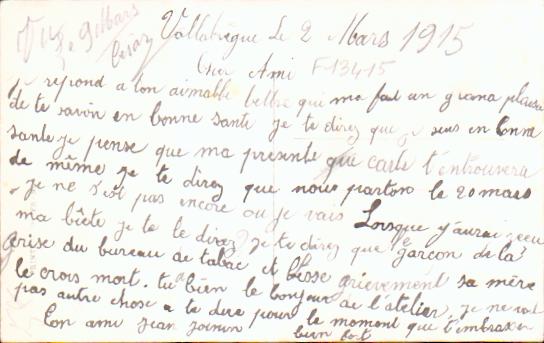 Vu le 9 Mars
Vallabrègue Le 2 Mars 1915
Cher Ami F-13415
je répond a ton aimable lettre qui ma fait un grand plaisir
de te savoir en bonne sante je te direz que je suis en bonne
sante je pense que ma presente carte t'entrouvera
de même je te direz que nous parton le 20 mars
je ne s'est pas encore ou je vais Lorsque j'aurai reçu
ma bête je te le direz, je te direz que le garçon de la
grise du bureau de tabac et blesse grievement sa mère
le crois mort. tu a bien le bonjour de l'atelier, je ne voi
pas autre chose a te dire pour le moment que t'embrasser
Ton ami Jean bien fort